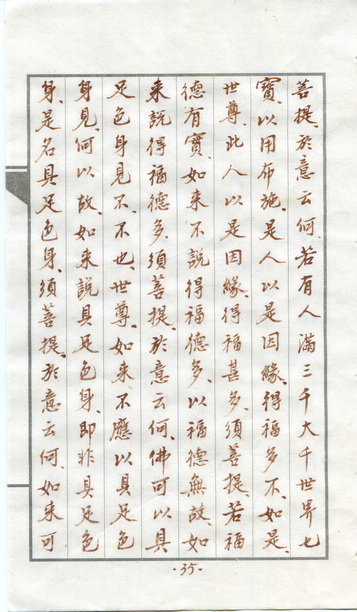 菩提、於意云何、若有人滿三千大千世界七
寶、以用布施、是人以是因緣、得福多不、如是、
世尊、此人以是因緣、得福甚多、須菩提、若福
德有實、如来不說得福德多、以福德無故、如
来說得福德多、須菩提、於意云何、佛可以具
足色身見不、不也、世尊、如来不應以具足色
身見、何以故、如来說具足色身、即非具足色
身、是名具足色身、須菩提、於意云何、如来可
·35·